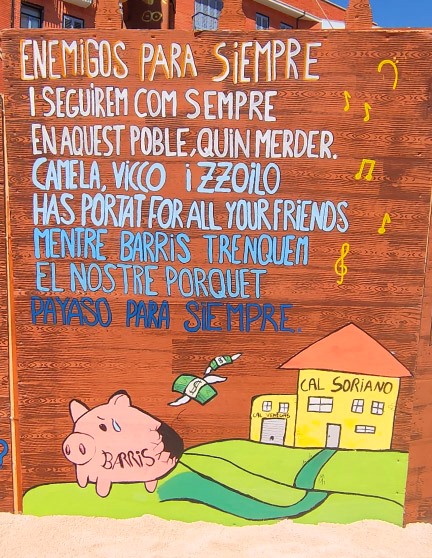 ENEMIGOS PARA SIEMPRE
I SEGUIREM COM SEMPRE
EN AQUEST POBLE, QUIN MERDER.
CAMELA, VICCO I ZZOILO
HAS PORTAT FOR ALL YOUR FRIENDS
MENTRE BARRIS TRENQUEM
EL NOSTRE PORQUET
PAYASO PARA SIEMPRE.
CAL SORIANO
CAL VENEGAS
BARRIS